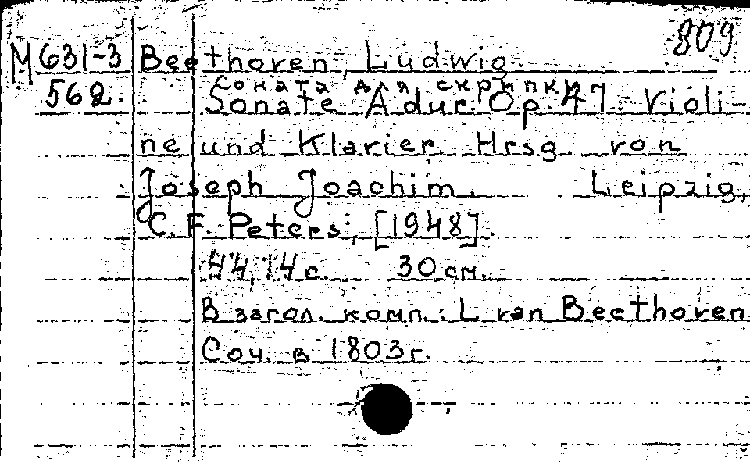 809
М 631-3 Beethoven, Ludwig.
562. Соната для скрипки
Sonate A dur. Op. 47. Violi-
ne und Klavier. Hrsg. von
Joseph Joachim. Leipzig,
C. F. Peters, [1948].
44, 14 с. 30 см.
В загол. комп.: L. van Beethoven
Соч. в 1803 г.